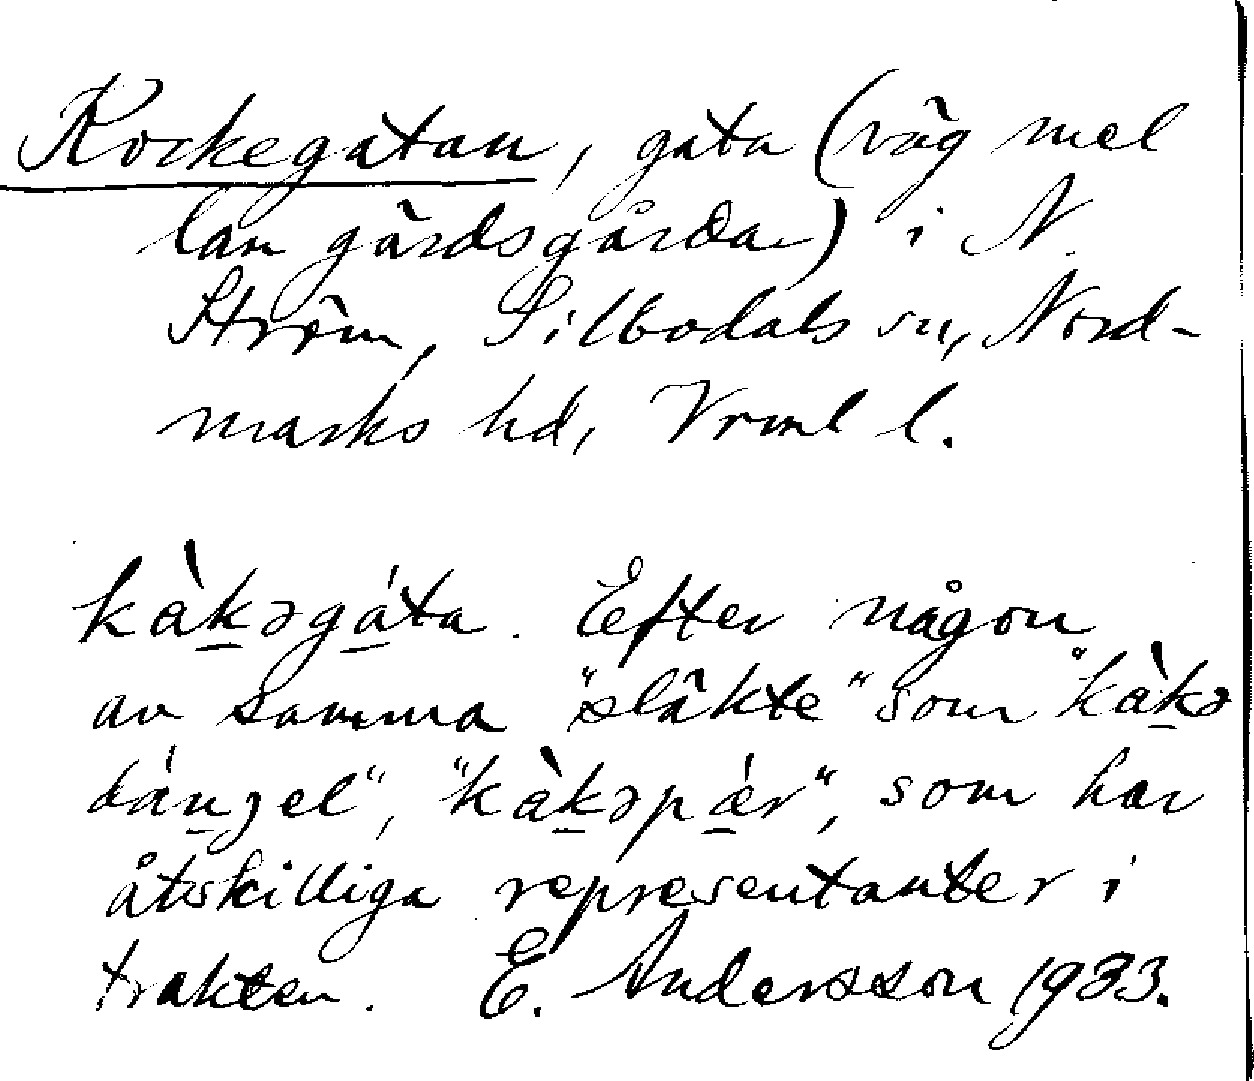 Kockegatan, gata (väg mel
lan gärdsgårdar) i N.
Ström, Silbodals sn, Nord-
marks hd, Vrml l.
kàkəgáta. Efter någon
av samma "släkte" som "kàkə
dánʒel", "kàkəpǽr", som har
åtskilliga representanter i
trakten. E. Andersson 1933.